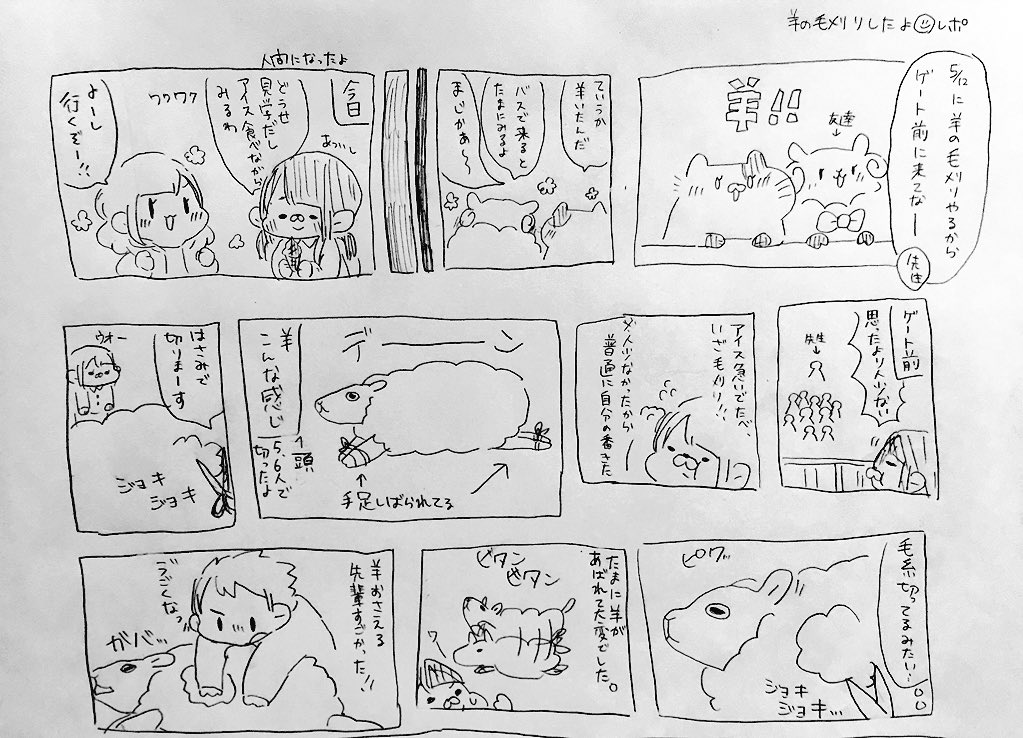 羊の毛刈りしたよレポ
5/12に羊の毛刈りやるから
ゲート前に来てなー
先生
羊!!
友達
ていうか
羊いたんだ
バスで来ると
たまにみるよ
まじかぁ〜
人間になったよ
今日
あついし
どうせ
見学だし
アイス食べながら
みるわ
ワクワク
よーし
行くぞー!!
ゲート前
思ったより人少ない
先生
アイス急いでたべ、
いざ毛刈り!!
人少なかったから
普通に自分の番きた
デーン
羊
こんな感じ
頭
5、6人で
切ったよ
手足しばられてる
はさみで
切りまーす
ウォー
ジョキ
ジョキ
毛糸切ってるみたい…
ピクッ
ジョキ
ジョキ…
たまに羊が
あばれて大変でした。
ビタン
ビタン
ワー
羊おさえる
先輩すごかった!!
うごくなっ
ガバッ